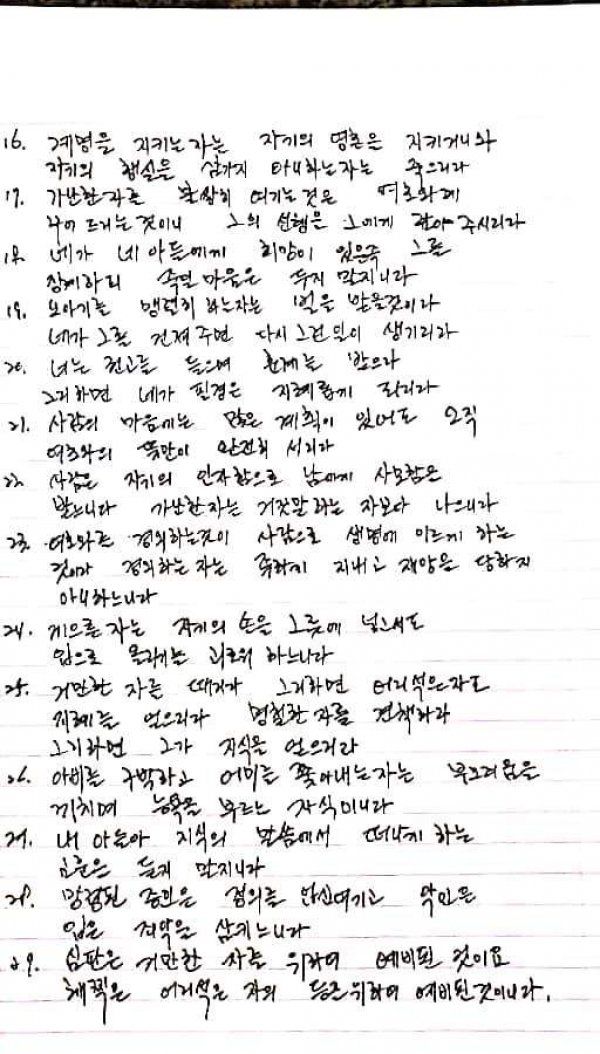 16. 계명을 지키는 자는 자기의 영혼을 지키거니와
자기의 행실을 삼가지 아니하는 자는 죽으리라
17. 가난한 자를 불쌍히 여기는 것은 여호와께
꾸어 드리는 것이니 그의 선행을 그에게 갚아 주시리라
18. 네가 네 아들에게 희망이 있은즉 그를
징계하되 죽일 마음은 두지 말지니라
19. 노하기를 맹렬히 하는 자는 벌을 받을 것이라
네가 그를 건져 주면 다시 그런 일이 생기리라
20. 너는 권고를 들으며 훈계를 받으라
그리하면 네가 필경은 지혜롭게 되리라
21. 사람의 마음에는 많은 계획이 있어도 오직
여호와의 뜻만이 완전히 서리라
22. 사람은 자기의 인자함으로 남에게 사모함을
받느니라 가난한 자는 거짓말하는 자보다 나으니라
23. 여호와를 경외하는 것이 사람으로 생명에 이르게 하는
것이라 경외하는 자는 족하게 지내고 재앙을 당하지
아니하느니라
24. 게으른 자는 자기의 손을 그릇에 넣고서도
입으로 올리기를 괴로워 하느니라
25. 거만한 자를 때리라 그리하면 어리석은 자도
지혜를 얻으리라 명철한 자를 견책하라
그리하면 그가 지식을 얻으리라
26. 아비를 구박하고 어미를 쫓아내는 자는 부끄러움을
끼치며 능욕을 부르는 자식이니라
27. 내 아들아 지식의 말씀에서 떠나게 하는
교훈을 듣지 말지니라
28. 망령된 증인은 정의를 업신여기고 악인의
입은 죄악을 삼키느니라
29. 심판은 거만한 자를 위하여 예비된 것이요
채찍은 어리석은 자의 등을 위하여 예비된 것이니라.